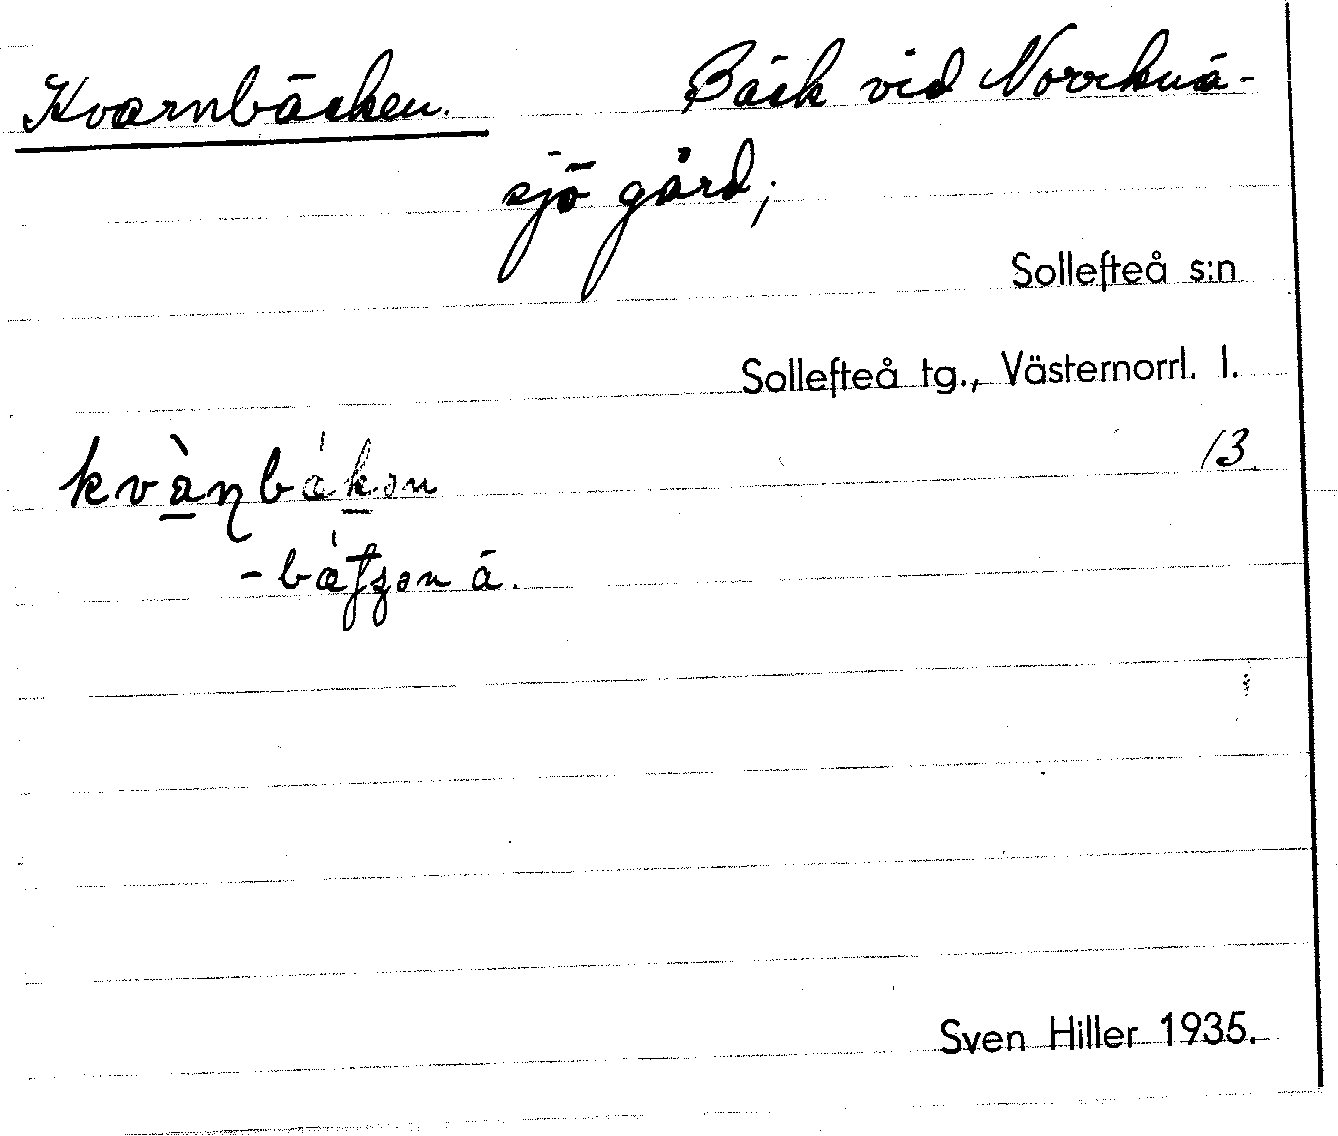 Kvarnbäcken. Bäck vid Norrknä-
sjö gård;
Sollefteå s:n
Sollefteå tg., Västernorrl. l.
13.
- ä.
Sven Hiller 1935.